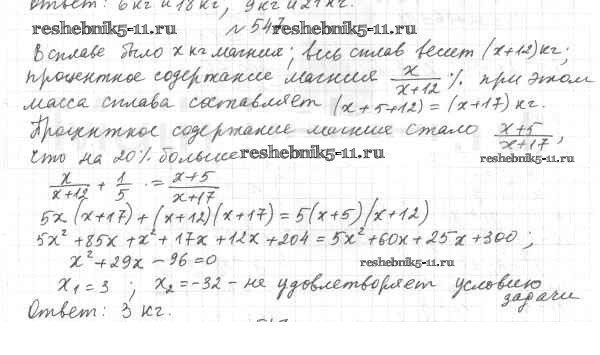 ответ: 6 кг и 18 кг, 9 кг и 21 кг.
reshebnik5-11.ru № 547 reshebnik5-11.ru
В сплаве было x кг магния; весь сплав весит (x+12) кг;
процентное содержание магния x/(x+12) % при этом
масса сплава составляет (x+5+12) = (x+17) кг.
Процентное содержание магния стало (x+5)/(x+17),
что на 20% больше reshebnik5-11.ru reshebnik5-11.ru
x/(x+12) + 1/5 · = (x+5)/(x+17)
5x(x+17) + (x+12)(x+17) = 5(x+5)(x+12)
5x² + 85x + x² + 17x + 12x + 204 = 5x² + 60x + 25x + 300;
x² + 29x - 96 = 0 reshebnik5-11.ru
x₁ = 3 ; x₂ = -32 - не удовлетворяет условию
задачи
Ответ: 3 кг.